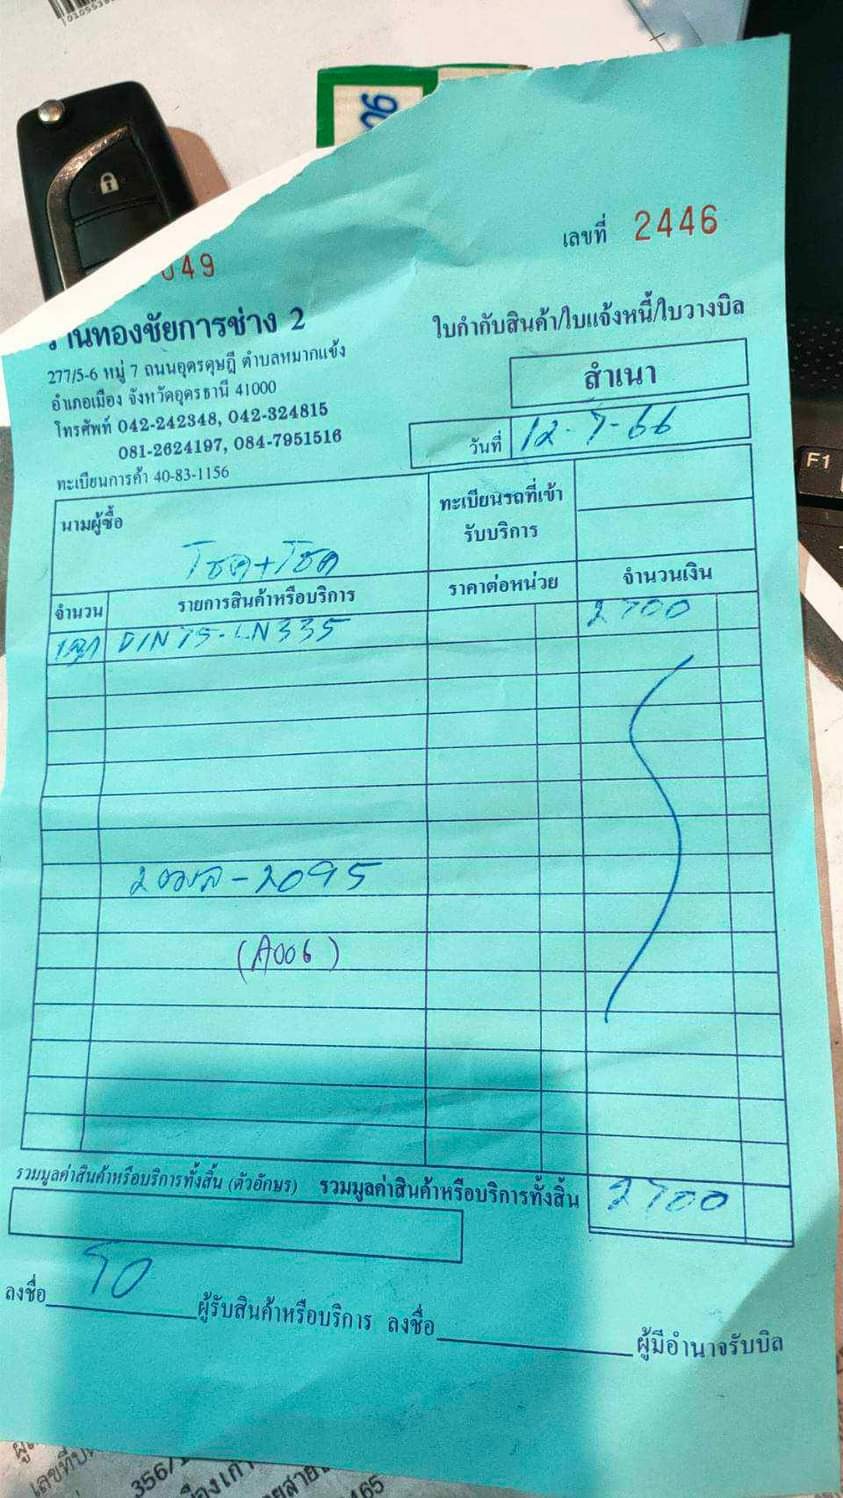 049
เลขที่ 2446
านทองชัยการช่าง 2
277/5-6 หมู่ 7 ถนนอุดรดุษฎี ตำบลหมากแข้ง
อำเภอเมือง จังหวัดอุดรธานี 41000
โทรศัพท์ 042-242348, 042-324815
081-2624197, 084-7951516
ทะเบียนการค้า 40-83-1156
ใบกำกับสินค้า/ใบแจ้งหนี้/ใบวางบิล
สำเนา
วันที่ 12-7-66
นามผู้ซื้อ
โชค+โชค
ทะเบียนรถที่เข้า
รับบริการ
จำนวน รายการสินค้าหรือบริการ ราคาต่อหน่วย จำนวนเงิน
1ลูก DIN75-LN335 2700
2095
(A006)
รวมมูลค่าสินค้าหรือบริการทั้งสิ้น (ตัวอักษร) รวมมูลค่าสินค้าหรือบริการทั้งสิ้น 2700
ลงชื่อ ผู้รับสินค้าหรือบริการ ลงชื่อ ผู้มีอำนาจรับบิล
F1
356/